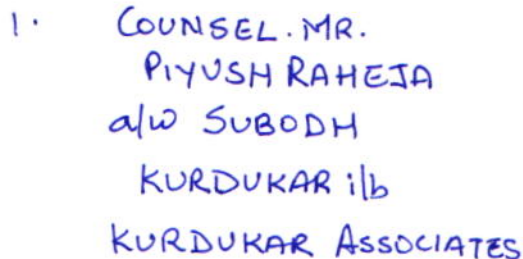 1. COUNSEL. MR.
PIYUSH RAHEJA
a/w SUBODH
KURDUKAR i/b
KURDUKAR ASSOCIATES